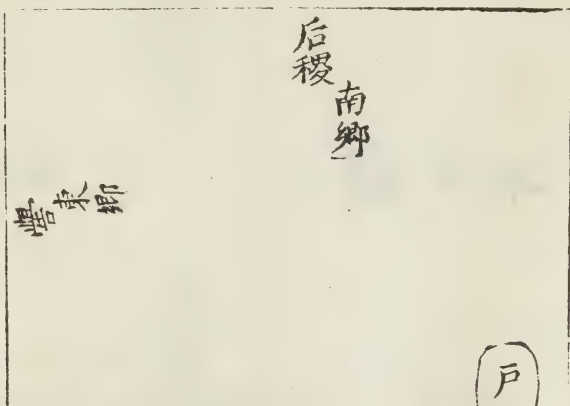 后稷
南鄉
嚳
東鄉
戶